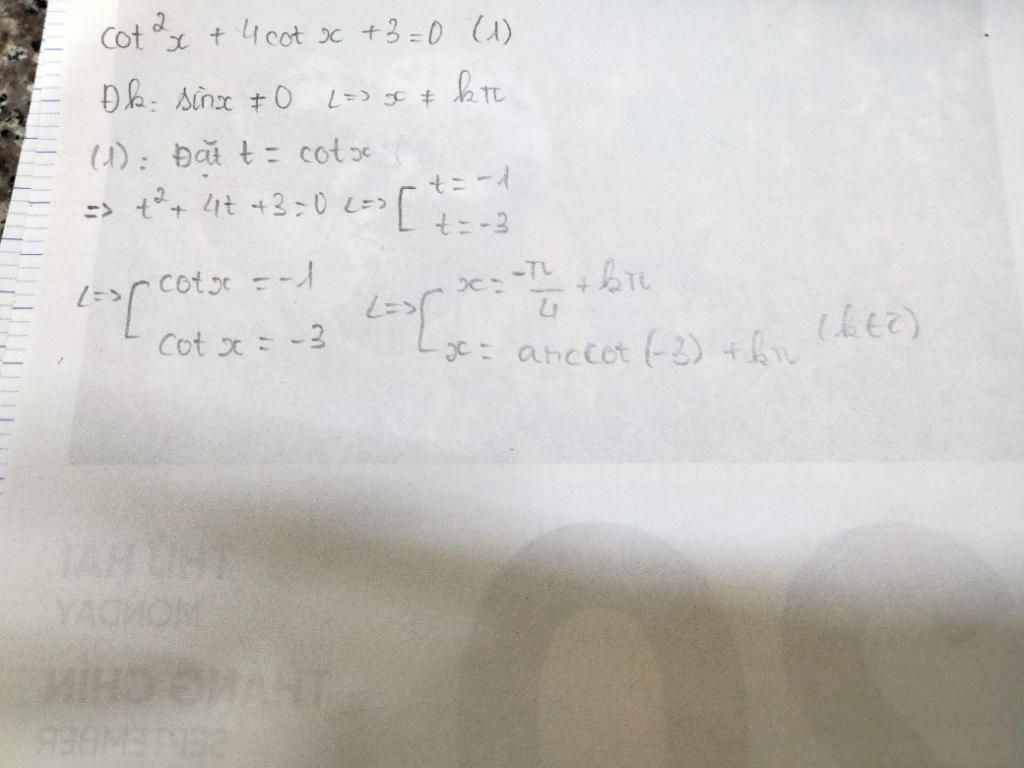 cot²x + 4cot x + 3 = 0 (1)
Đk: sinx ≠ 0 <=> x ≠ kπ
(1): Đặt t = cotx
=> t² + 4t + 3 = 0 <=> [ t = -1
t = -3
<=> [ cotx = -1 <=> [ x = -π/4 + kπ
cot x = -3 x = arccot (-3) + kπ (k∈Z)
THỨ HAI
MONDAY
THÁNG CHÍN
SEPTEMBER
20